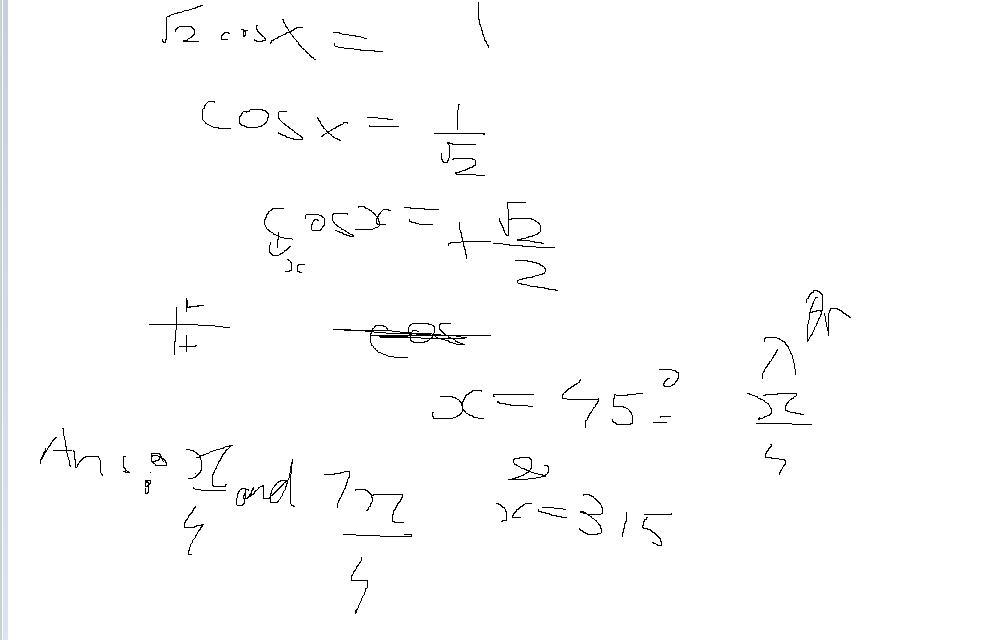 √2 cosx = 1
cosx = 1/√2
cosx = +√2/2
x
+
+
cos
x = 45°
π/4
Ans: π/4 and 7π/4
&
x = 315